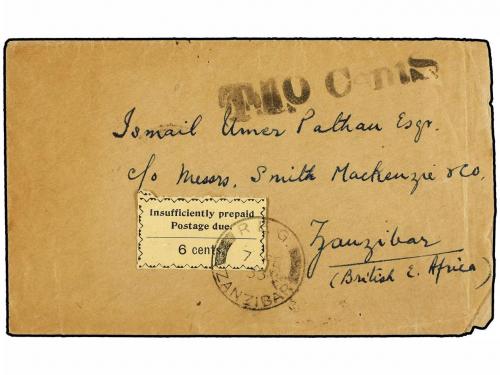 T.10 Cents
Ismail Umer Pathan Esqr.
c/o Messrs. Smith Mackenzie & Co.
Zanzibar
(British E. Africa)
Insufficiently prepaid
Postage due.
6 cents.
R. G.
7
ZANZIBAR